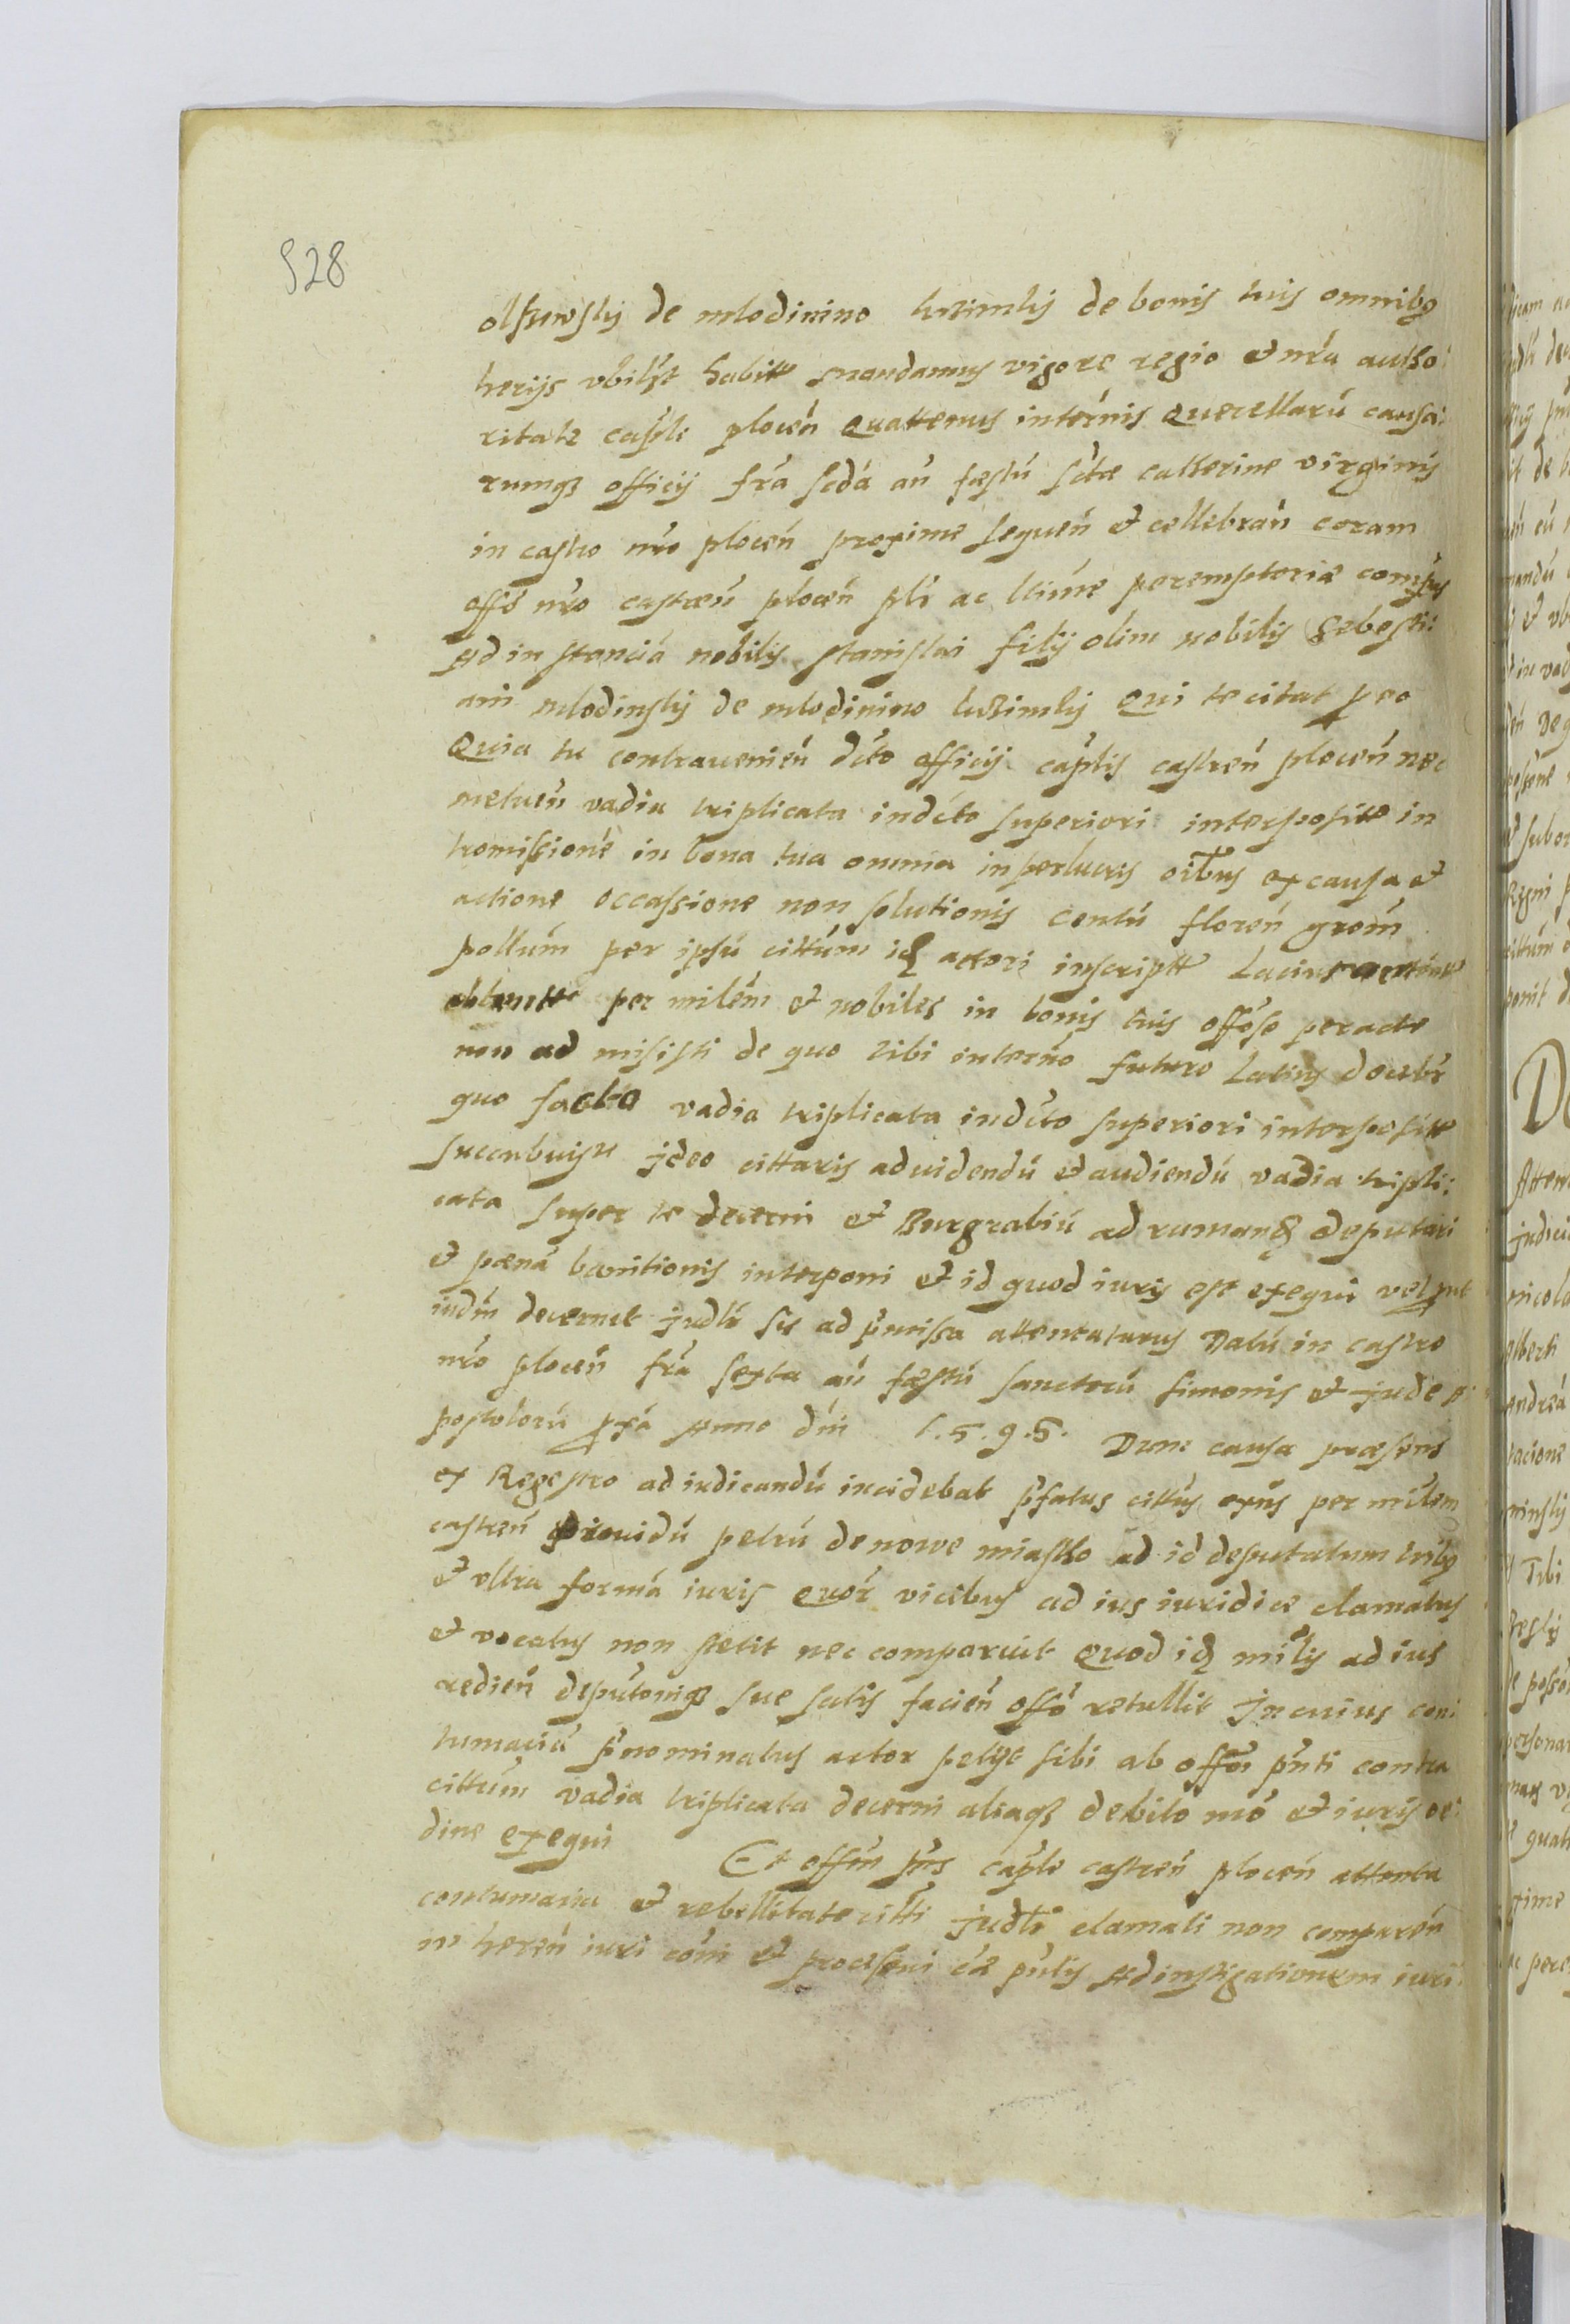 528
olszewsky de mlodinino luzimky de bonis tuis omnibq
herijs vbilzt habitt mandamus vigore regio et nra autho:
ritate captli plocen quattenus internis querellaru causa:
rumq3 officij fra scda an festu sctae catterine virginis
in castro nro plocen proxime sequen et cellebran coram
offo nro castren plocen plr ac ltime peremptoriae compas
Ad instancia nobilis stanislai filij olim nobilis Sebesti:
ani mlodinsky de mlodinino luzimky Qui te citat pro
Quia tu contravenien dcto officij captlis castren plocen nec
metuen vadia triplicata indcto superiori interposita in
tromissione in bona tua omnia in perlucris oibus ex causa et
actione occassione non solutionis centu floren grom
pollum per ipsu cittum id actori inscriptt Lacius
obtentt per milem et nobiles in bonis tuis offose peracte
non ad misisti de quo tibi interno futuro Latius docebr
quo facto vadia triplicata indcto superiori interpositt
succubuisti jdeo cittaris ad videndu et audiendu vadia tripli:
cata super te decerni et Burgrabiu ad rumand deputari
et paena bannitionis interponi et id quod iuris est exequi vel put
iudm decernet judlr sis ad pmissa attentaturus Datu in castro
nro plocen fra sexta an festu sanctoru simonis et jude A:
postoloru pxa Anno dni 1.5.9.5. Dum causa praesens
ex Regestro ad iudicandu incidebat pfatus cittus exns per milem
castren providu petru de nowe miastho ad id deputatum tribq
et vltra forma iuris quor vicibus ad ius iuridice clamatus
et vocatus non stetit nec comparuit Quod id milis ad ius
redien deputoniq3 sue satis facien offo retullit Jn cuius con:
tumacia pnominatus actor petijt sibi ab offoi pnti contra
cittum vadia triplicata decerni aliaq3 debito mo et iuris or:
dine exequi Et offm pns captle castren plocen attenta
contumacia et rebellitate citti judlr clamati non comparen
in heren iuri coni et processui cae pntis Ad instigationem iuri: